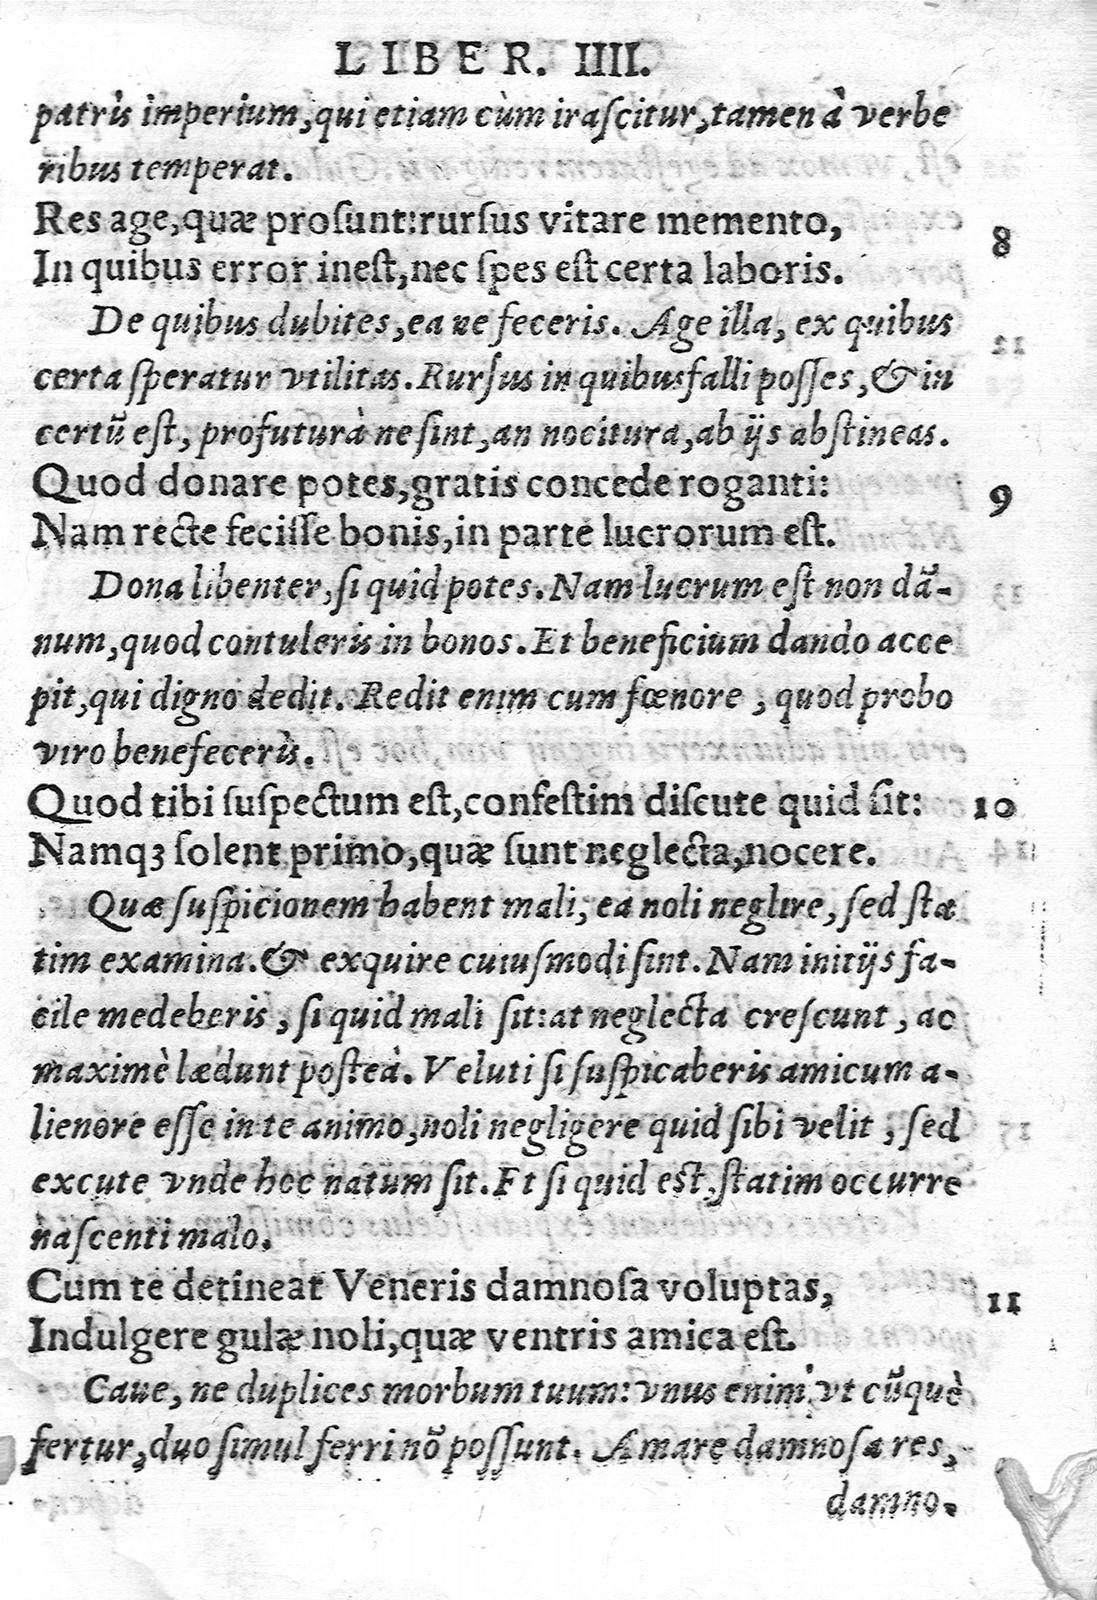 LIBER. IIII.
patris imperium, qui etiam cùm iraſcitur, tamen à verbe
ribus temperat.
Res age, quæ proſunt: rurſus vitare memento,
In quibus error ineſt, nec ſpes eſt certa laboris.
8
De quibus dubites, ea ne feceris. Age illa, ex quibus
certa ſperatur vtilitas. Rurſus in quibus falli poſſes, & in
certũ eſt, profutura ̀ne ſint, an nocitura, ab ijs abſtineas.
Quod donare potes, gratis concede roganti:
9
Nam recte feciſſe bonis, in parte lucrorum eſt.
Dona libenter, ſi quid potes. Nam lucrum eſt non dã-
num, quod contuleris in bonos. Et beneficium dando acce
pit, qui digno dedit. Redit enim cum fœnore, quod probo
viro benefeceris.
Quod tibi ſuſpectum eſt, confeſtim diſcute quid ſit:
10
Namqꝫ ſolent primo, quæ ſunt neglecta, nocere.
Quæ ſuſpicionem habent mali, ea noli neglire, ſed ſta
tim examina. & exquire cuiuſmodi ſint. Nam initijs fa-
cile medeberis, ſi quid mali ſit: at neglecta creſcunt, ac
maximè lædunt poſteà. Veluti ſi ſuſpicaberis amicum a-
lienore eſſe in te animo, noli negligere quid ſibi velit, ſed
excute vnde hoc natum ſit. Et ſi quid eſt, ſtatim occurre
naſcenti malo.
Cum te detineat Veneris damnoſa voluptas,
11
Indulgere gulæ noli, quæ ventris amica eſt.
Caue, ne duplices morbum tuum: vnus enim vt cũquè
fertur, duo ſimul ferri nõ poſſunt. Amare damnoſa res,
damno-